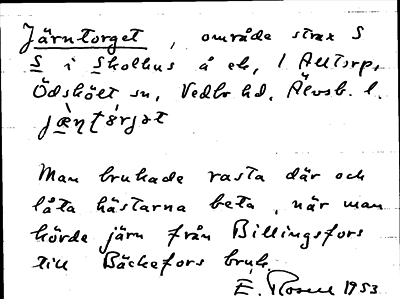 Järntorget, område strax S
S i Skolhus å ek, 1 Alltorp,
Ödskölt sn, Vedbo hd, Älvsb. l.
jæ̀ɳtórjət
Man brukade rasta där och
låta hästarna beta, när man
körde järn från Billingsfors
till Bäckefors bruk.
E. Rosell 1953